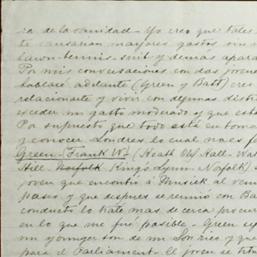 ra de la vanidad. Yo creo que tales
te causarian mayores gastos sin
lawn-tennis-suit y demas apara
Por mis conversaciones con dos jovene
hablaré adelante (Green y Batt) cre
relacionarte y vivir con algunas disti
exceder un gasto moderado y que esta
Por supuesto que todo esta en toma
y conocer Londres lo cual no es f
Green - Frank W. (Heath Old Hall - Wa
Hill - Norfolk King's Lynn - Norfolk)
joven que encontré á Munsick al
pasar y que despues se reunió con Ba
conducto lo traté mas de cerca procur
en lo que me fué posible. Green
un younger son de un Lor rico y que
para el Parliament. El joven se titu